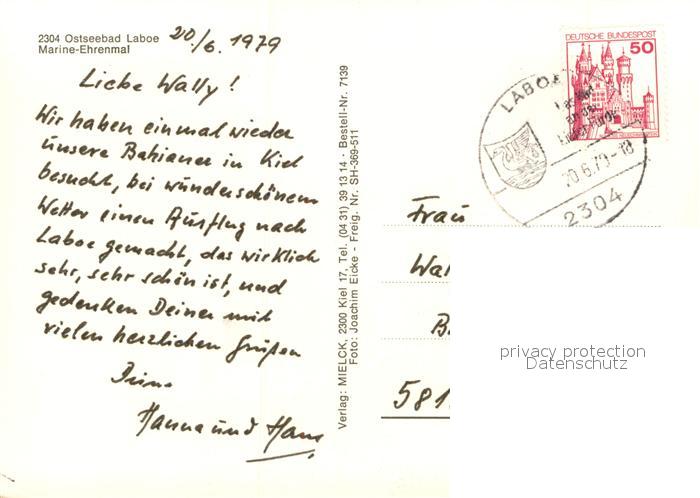 2304 Ostseebad Laboe
Marine-Ehrenmal
20/6. 1979
Liebe Wally!
Wir haben einmal wieder
unsere Bahianer in Kiel
besucht, bei wunderschönem
Wetter einen Ausflug nach
Laboe gemacht, das wirklich
sehr, sehr schön ist, und
gedenken Deiner mit
vielen herzlichen Grüßen
Deine
Hanna und Hans
Verlag: MIELCK, 2300 Kiel 17, Tel. (04 31) 39 13 14 · Bestell-Nr. 7139
Foto: Joachim Eicke - Freig. Nr. SH-369-511
DEUTSCHE BUNDESPOST
50
LABOE
an der
20.6.79-18
2304
Frau
Wal
B
581
privacy protection
Datenschutz